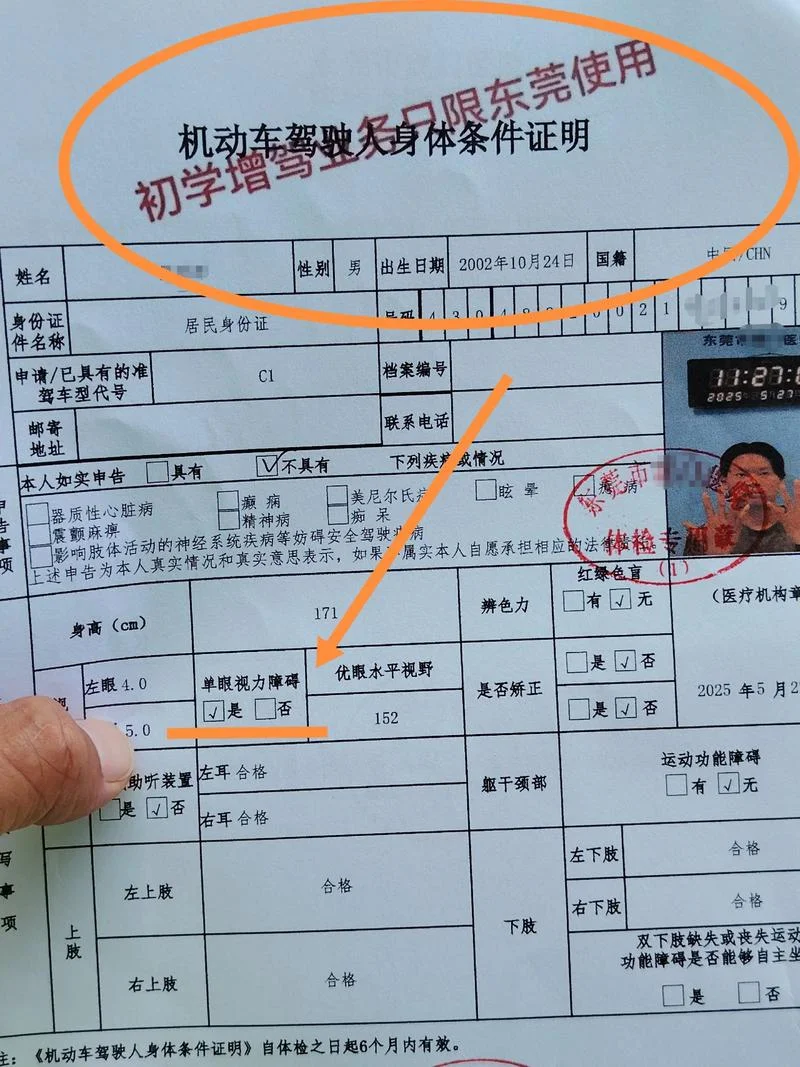 初学增驾业务只限东莞使用
机动车驾驶人身体条件证明
姓名 性别 男 出生日期 2002年10月24日 国籍 中国/CHN
身份证件名称 居民身份证 号码
申请/已具有的准驾车型代号 C1 档案编号
邮寄地址 联系电话
11:27:0
2025 5 27
本人如实申告 具有 √ 不具有 下列疾病或情况
器质性心脏病 癫痫 美尼尔氏 眩晕 癔病
震颤麻痹 精神病 痴呆
影响肢体活动的神经系统疾病等妨碍安全驾驶疾病
上述申告为本人真实情况和真实意思表示，如果不属实本人自愿承担相应的法律责任。
东莞市
体检专用章
(1)
身高（cm） 171 辨色力 红绿色盲
有 √ 无
（医疗机构章
左眼 4.0 单眼视力障碍 优眼水平视野 是否矫正 是 √ 否
5.0 √ 是 否 152 是 √ 否
2025 年 5 月 2
助听装置 左耳 合格 躯干颈部 运动功能障碍
是 √ 否 右耳 合格 有 √ 无
上肢 左上肢 合格 下肢 左下肢 合格
右下肢 合格
右上肢 合格 双下肢缺失或丧失运动
功能障碍是否能够自主坐
是 否
注：《机动车驾驶人身体条件证明》自体检之日起6个月内有效。